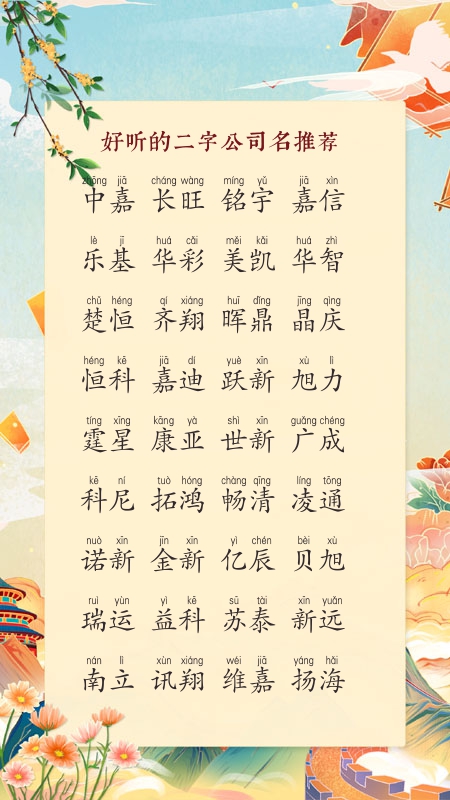 好听的二字公司名推荐
zhōng jiā cháng wàng míng yǔ jiā xìn
中嘉 长旺 铭宇 嘉信
lè jī huá cǎi měi kǎi huá zhì
乐基 华彩 美凯 华智
chǔ héng qí xiáng huī dǐng jīng qìng
楚恒 齐翔 晖鼎 晶庆
héng kē jiā dí yuè xīn xù lì
恒科 嘉迪 跃新 旭力
tíng xīng kāng yà shì xīn guǎng chéng
霆星 康亚 世新 广成
kē ní tuò hóng chàng qīng líng tōng
科尼 拓鸿 畅清 凌通
nuò xīn jīn xīn yì chén bèi xù
诺新 金新 亿辰 贝旭
ruì yùn yì kē sū tài xīn yuǎn
瑞运 益科 苏泰 新远
nán lì xùn xiáng wéi jiā yáng hǎi
南立 讯翔 维嘉 扬海